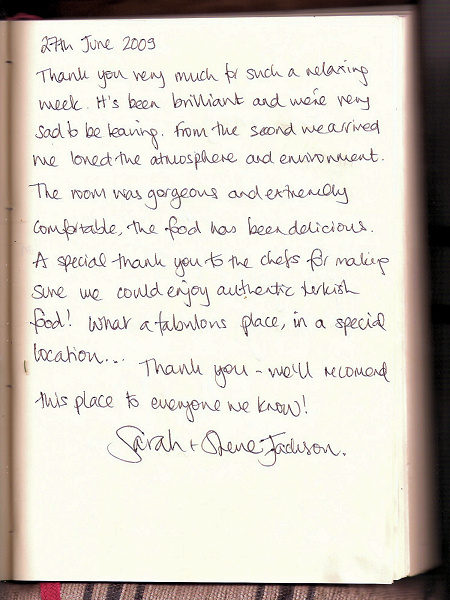 27th June 2009
Thank you very much for such a relaxing
week. It's been brilliant and we're very
sad to be leaving. From the second we arrived
we loved the atmosphere and environment.
The room was gorgeous and extremely
comfortable, the food has been delicious.
A special thank you to the chefs for making
sure we could enjoy authentic turkish
food! What a fabulous place, in a special
location...
Thank you - we'll recomend
this place to everyone we know!
Sarah + Steve Jackson.